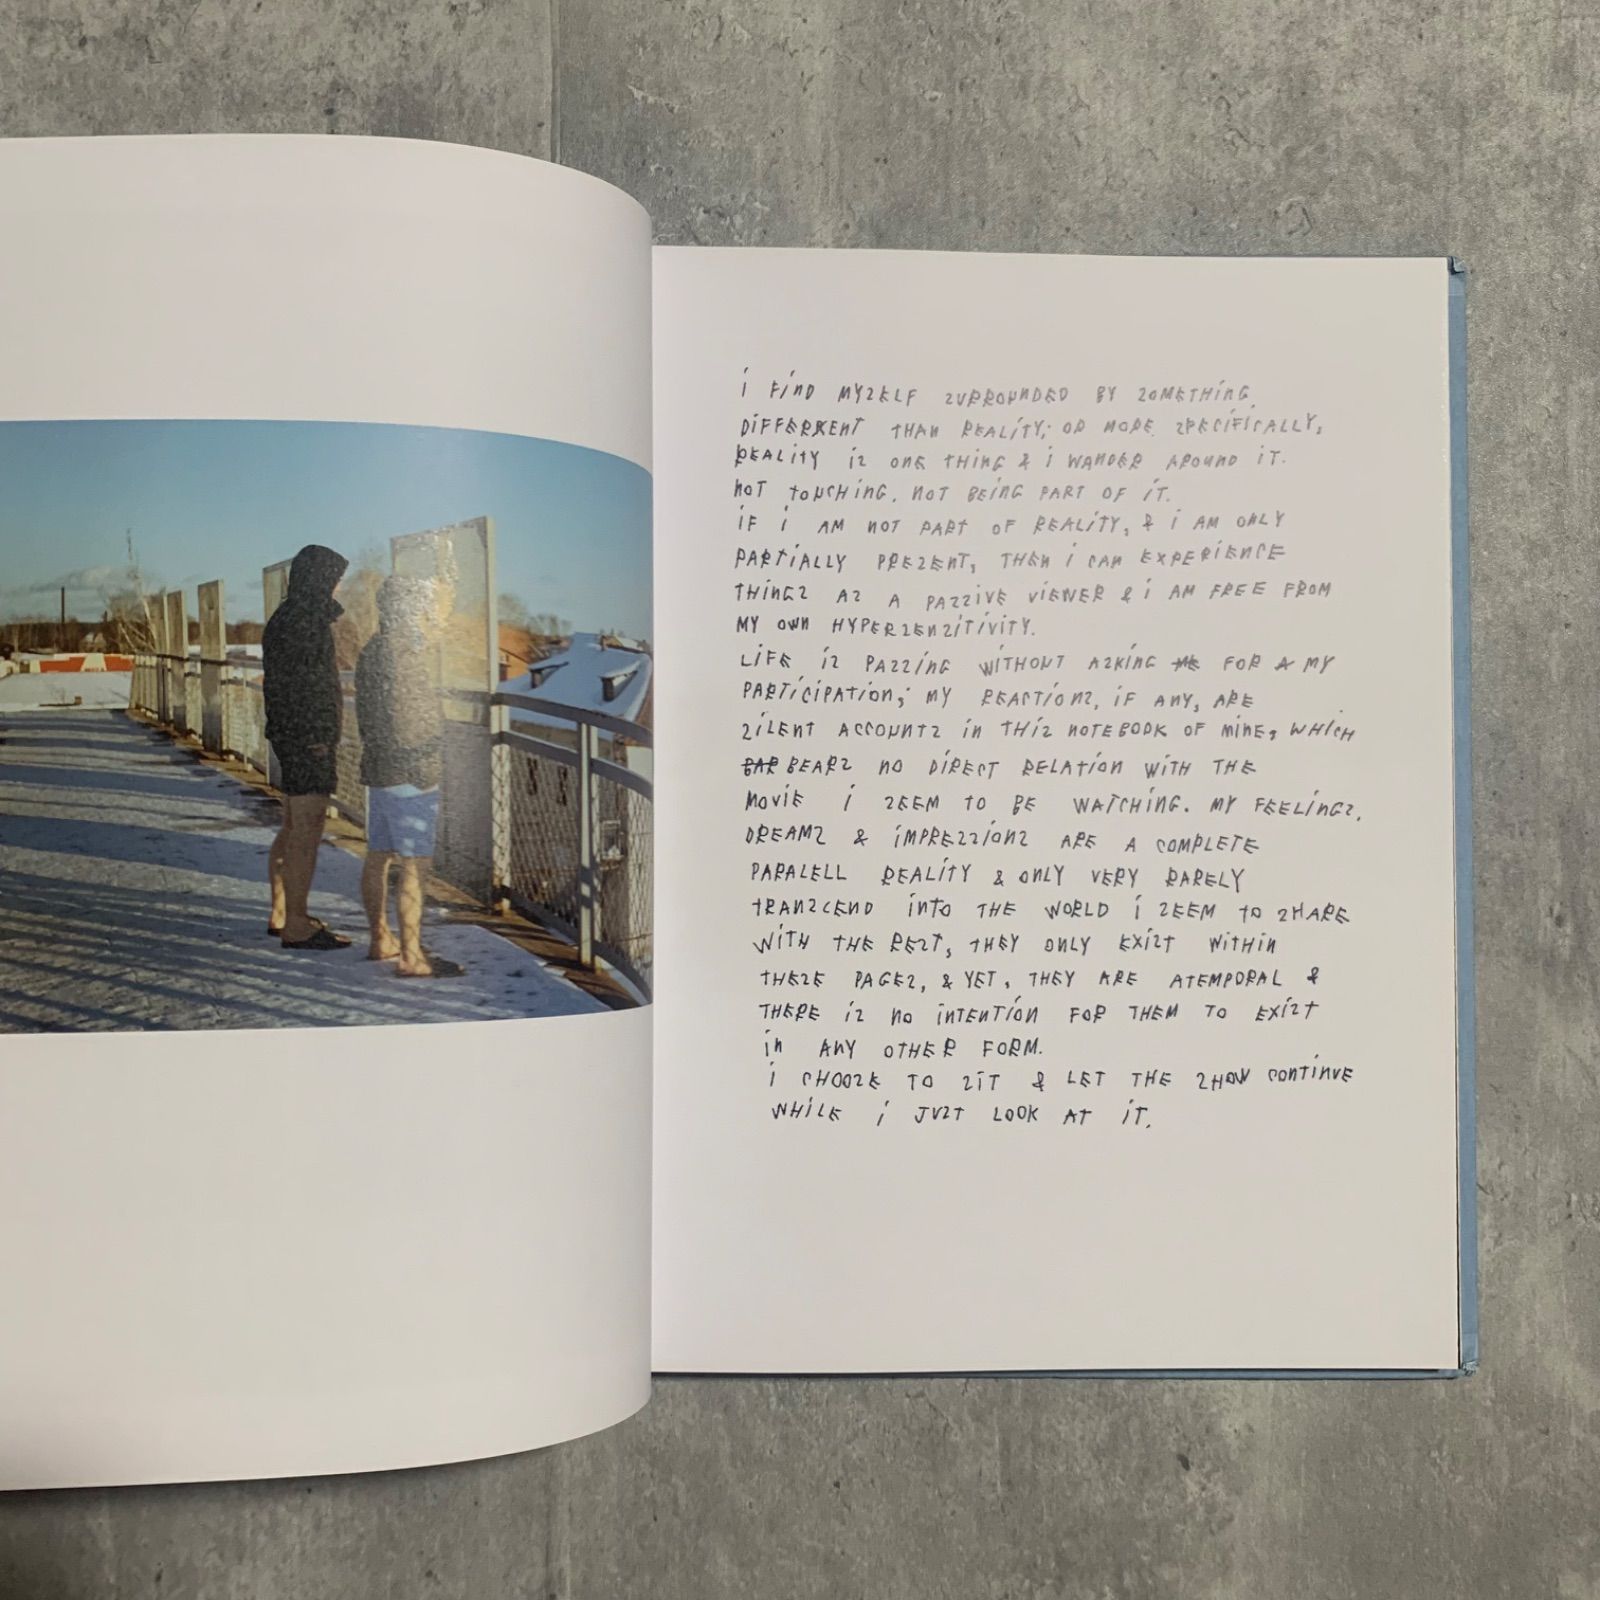 i FiND MYSELF SURROUNDED BY SOMETHiNG
DiFFERENT THAN REALiTY; OR MORE SPECiFiCALLY,
REALiTY iS ONE THiNG & i WANDER AROUND iT.
NOT TOUCHiNG, NOT BEiNG PART OF iT.
iF i AM NOT PART OF REALiTY, & i AM ONLY
PARTiALLY PRESENT, THEN i CAN EXPERiENCE
THiNGS AS A PASSiVE ViEWER & i AM FREE FROM
MY OWN HYPERSENSiTiViTY.
LiFE iS PASSiNG WiTHOUT ASKiNG ME FOR A MY
PARTiCiPATiON; MY REACTiONS, iF ANY, ARE
SiLENT ACCOUNTS iN THiS NOTEBOOK OF MiNE, WHiCH
BAR BEARS NO DiRECT RELATiON WiTH THE
MOViE i SEEM TO BE WATCHiNG. MY FEELiNGS,
DREAMS & iMPRESSiONS ARE A COMPLETE
PARALELL REALiTY & ONLY VERY RARELY
TRANSCEND iNTO THE WORLD i SEEM TO SHARE
WiTH THE REST, THEY ONLY EXiST WiTHiN
THESE PAGES, & YET, THEY ARE ATEMPORAL &
THERE iS NO iNTENTiON FOR THEM TO EXiST
iN ANY OTHER FORM.
i CHOOSE TO SiT & LET THE SHOW CONTiNUE
WHiLE i JUST LOOK AT iT.